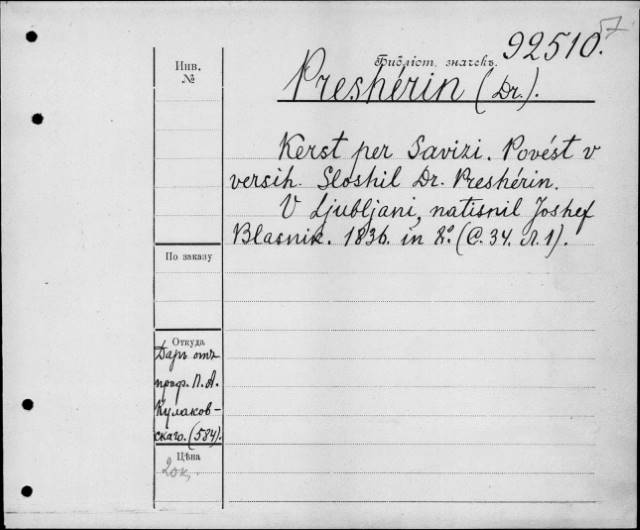 57
92510.
Инв.
№
Библіот. значекъ.
Preshérin (Dr.).
Kerst per Savizi. Povést v
versih. Sloshil Dr. Preshérin.
V Ljubljani, natisnil Joshef
Blasnik. 1836. in 8º. (С. 34. л. 1).
По заказу
Откуда
Даръ отъ
проф. П. А.
Кулаков-
скаго. (584).
Цѣна
20к.